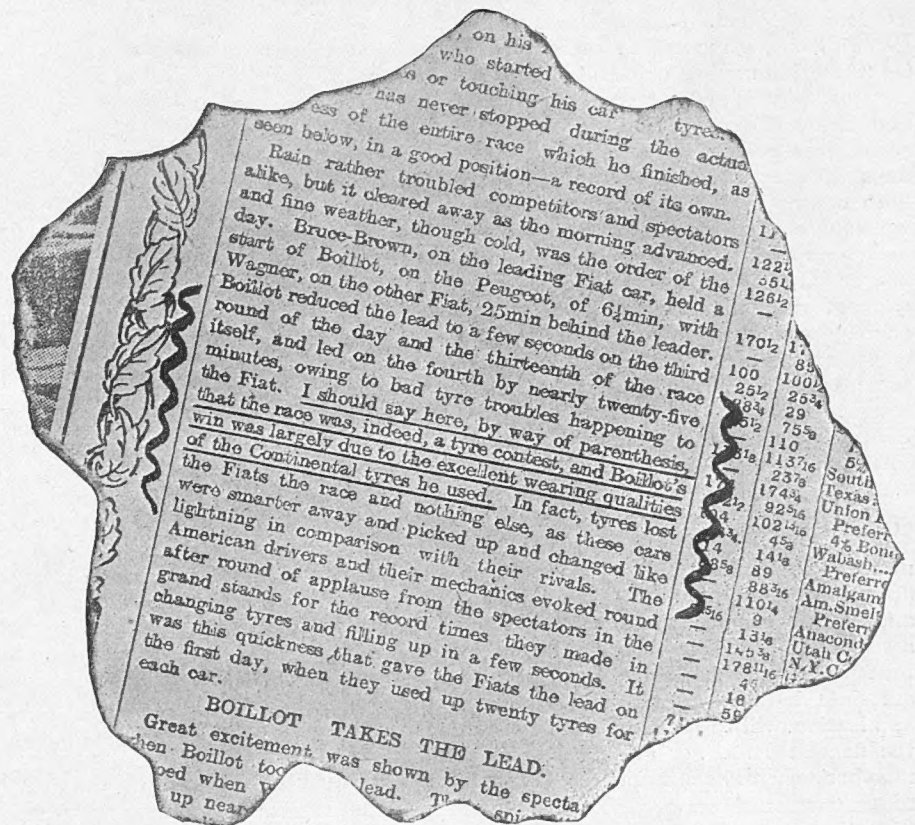 , on his
who started
s or touching his car tyres
has never stopped during the actua
ess of the entire race which he finished, as
seen below, in a good position—a record of its own.
Rain rather troubled competitors and spectators
alike, but it cleared away as the morning advanced.
and fine weather, though cold, was the order of the
day. Bruce-Brown, on the leading Fiat car, held a
start of Boillot, on the Peugeot, of 6½min, with
Wagner, on the other Fiat, 25min behind the leader.
Boillot reduced the lead to a few seconds on the third
round of the day and the thirteenth of the race
itself, and led on the fourth by nearly twenty-five
minutes, owing to bad tyre troubles happening to
the Fiat. I should say here, by way of parenthesis,
that the race was, indeed, a tyre contest, and Boillot's
win was largely due to the excellent wearing qualities
of the Continental tyres he used. In fact, tyres lost
the Fiats the race and nothing else, as these cars
were smarter away and picked up and changed like
lightning in comparison with their rivals. The
American drivers and their mechanics evoked round
after round of applause from the spectators in the
grand stands for the record times they made in
changing tyres and filling up in a few seconds. It
was this quickness that gave the Fiats the lead on
the first day, when they used up twenty tyres for
each car.
BOILLOT TAKES THE LEAD.
Great excitement was shown by the specta
hen Boillot too lead.
ped when
up near
126½
170½
100
25½
100½
25¾
29
75⅝
110
113⁷⁄₁₆
23⅞
174¾
92⁵⁄₁₆
102¹³⁄₁₆
4⅝
14⅛
89
88³⁄₁₆
110¼
9
13⅛
145⅜
178¹¹⁄₁₆
18
59
South
Texas
Union
Prefer
4% Bon
Wabash...
Preferre
Amalgam
Am.Smel
Preferr
Anacond
Utah C
N.Y.C